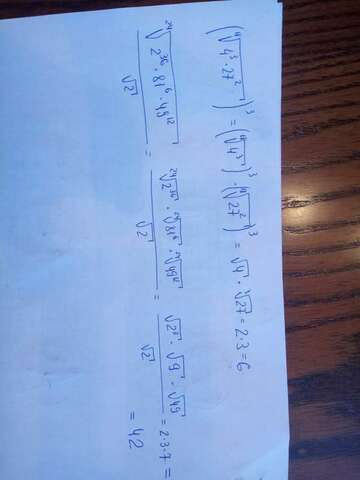 (¹⁸√4³·27²)³ = (¹⁸√4³)³ · (¹⁸√27²)³ = √4 · ³√27 = 2·3 = 6
²⁴√2³⁶·81⁶·49¹² / √2 = ²⁴√2³⁶ · ²⁴√81⁶ · ²⁴√49¹² / √2 = √2³ · √9 · √49 / √2 = 2·3·7 =
= 42